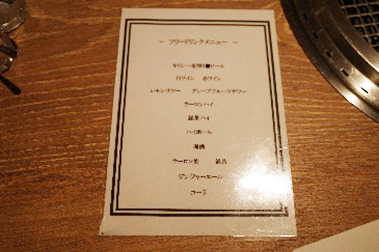 ～ フリードリンクメニュー ～
キリン一番搾り生ビール
白ワイン 赤ワイン
レモンサワー グレープフルーツサワー
ウーロンハイ
緑茶ハイ
ハイボール
梅酒
ウーロン茶 緑茶
ジンジャーエール
コーラ